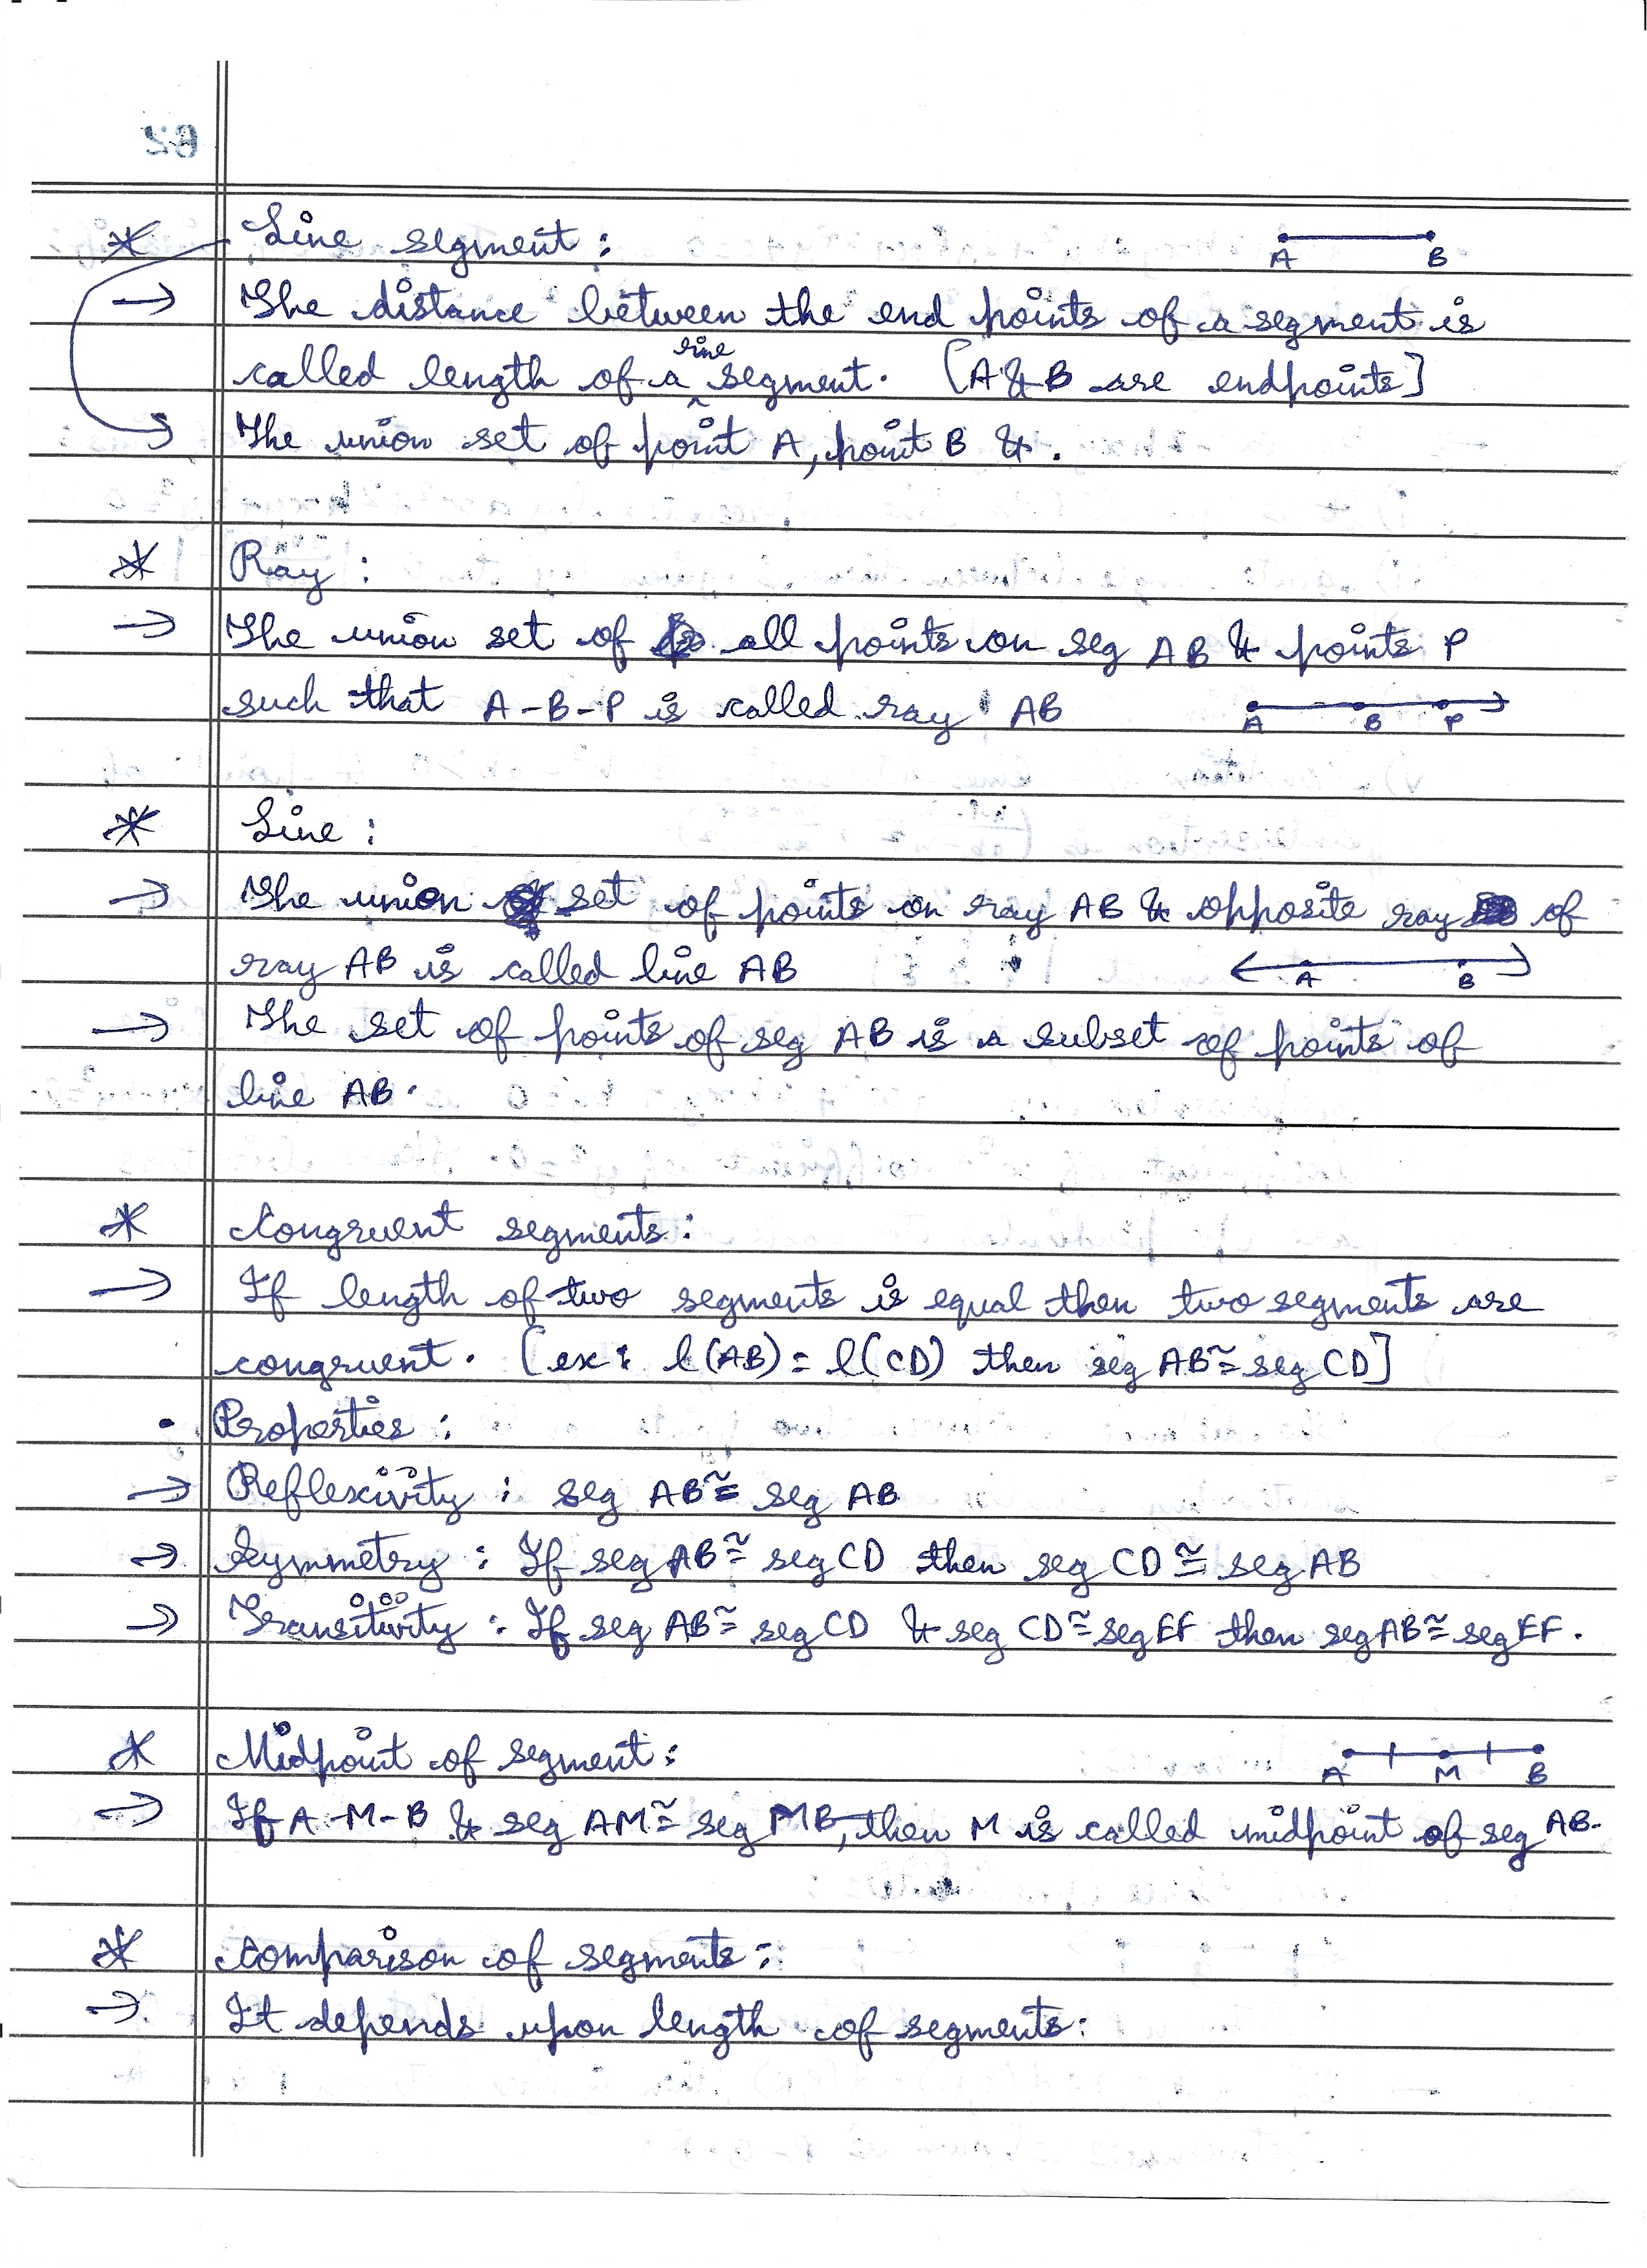 * Line segment :
A B
→ The distance between the end points of a segment is
called length of a line segment. [A & B are endpoints]
→ The union set of point A, point B & .
* Ray :
→ The union set of all points on seg AB & points P
such that A-B-P is called ray AB
A B P
* Line :
→ The union set of points on ray AB & opposite ray of
ray AB is called line AB
A B
→ The set of points of seg AB is a subset of points of
line AB.
* Congruent segments :
→ If length of two segments is equal then two segments are
congruent. [ex: l(AB) = l(CD) then seg AB ≅ seg CD]
• Properties :
→ Reflexivity : seg AB ≅ seg AB
→ Symmetry : If seg AB ≅ seg CD then seg CD ≅ seg AB
→ Transitivity : If seg AB ≅ seg CD & seg CD ≅ seg EF then seg AB ≅ seg EF.
* Midpoint of segment :
A M B
→ If A-M-B & seg AM ≅ seg MB, then M is called midpoint of seg AB.
* Comparison of segments :
→ It depends upon length of segments :